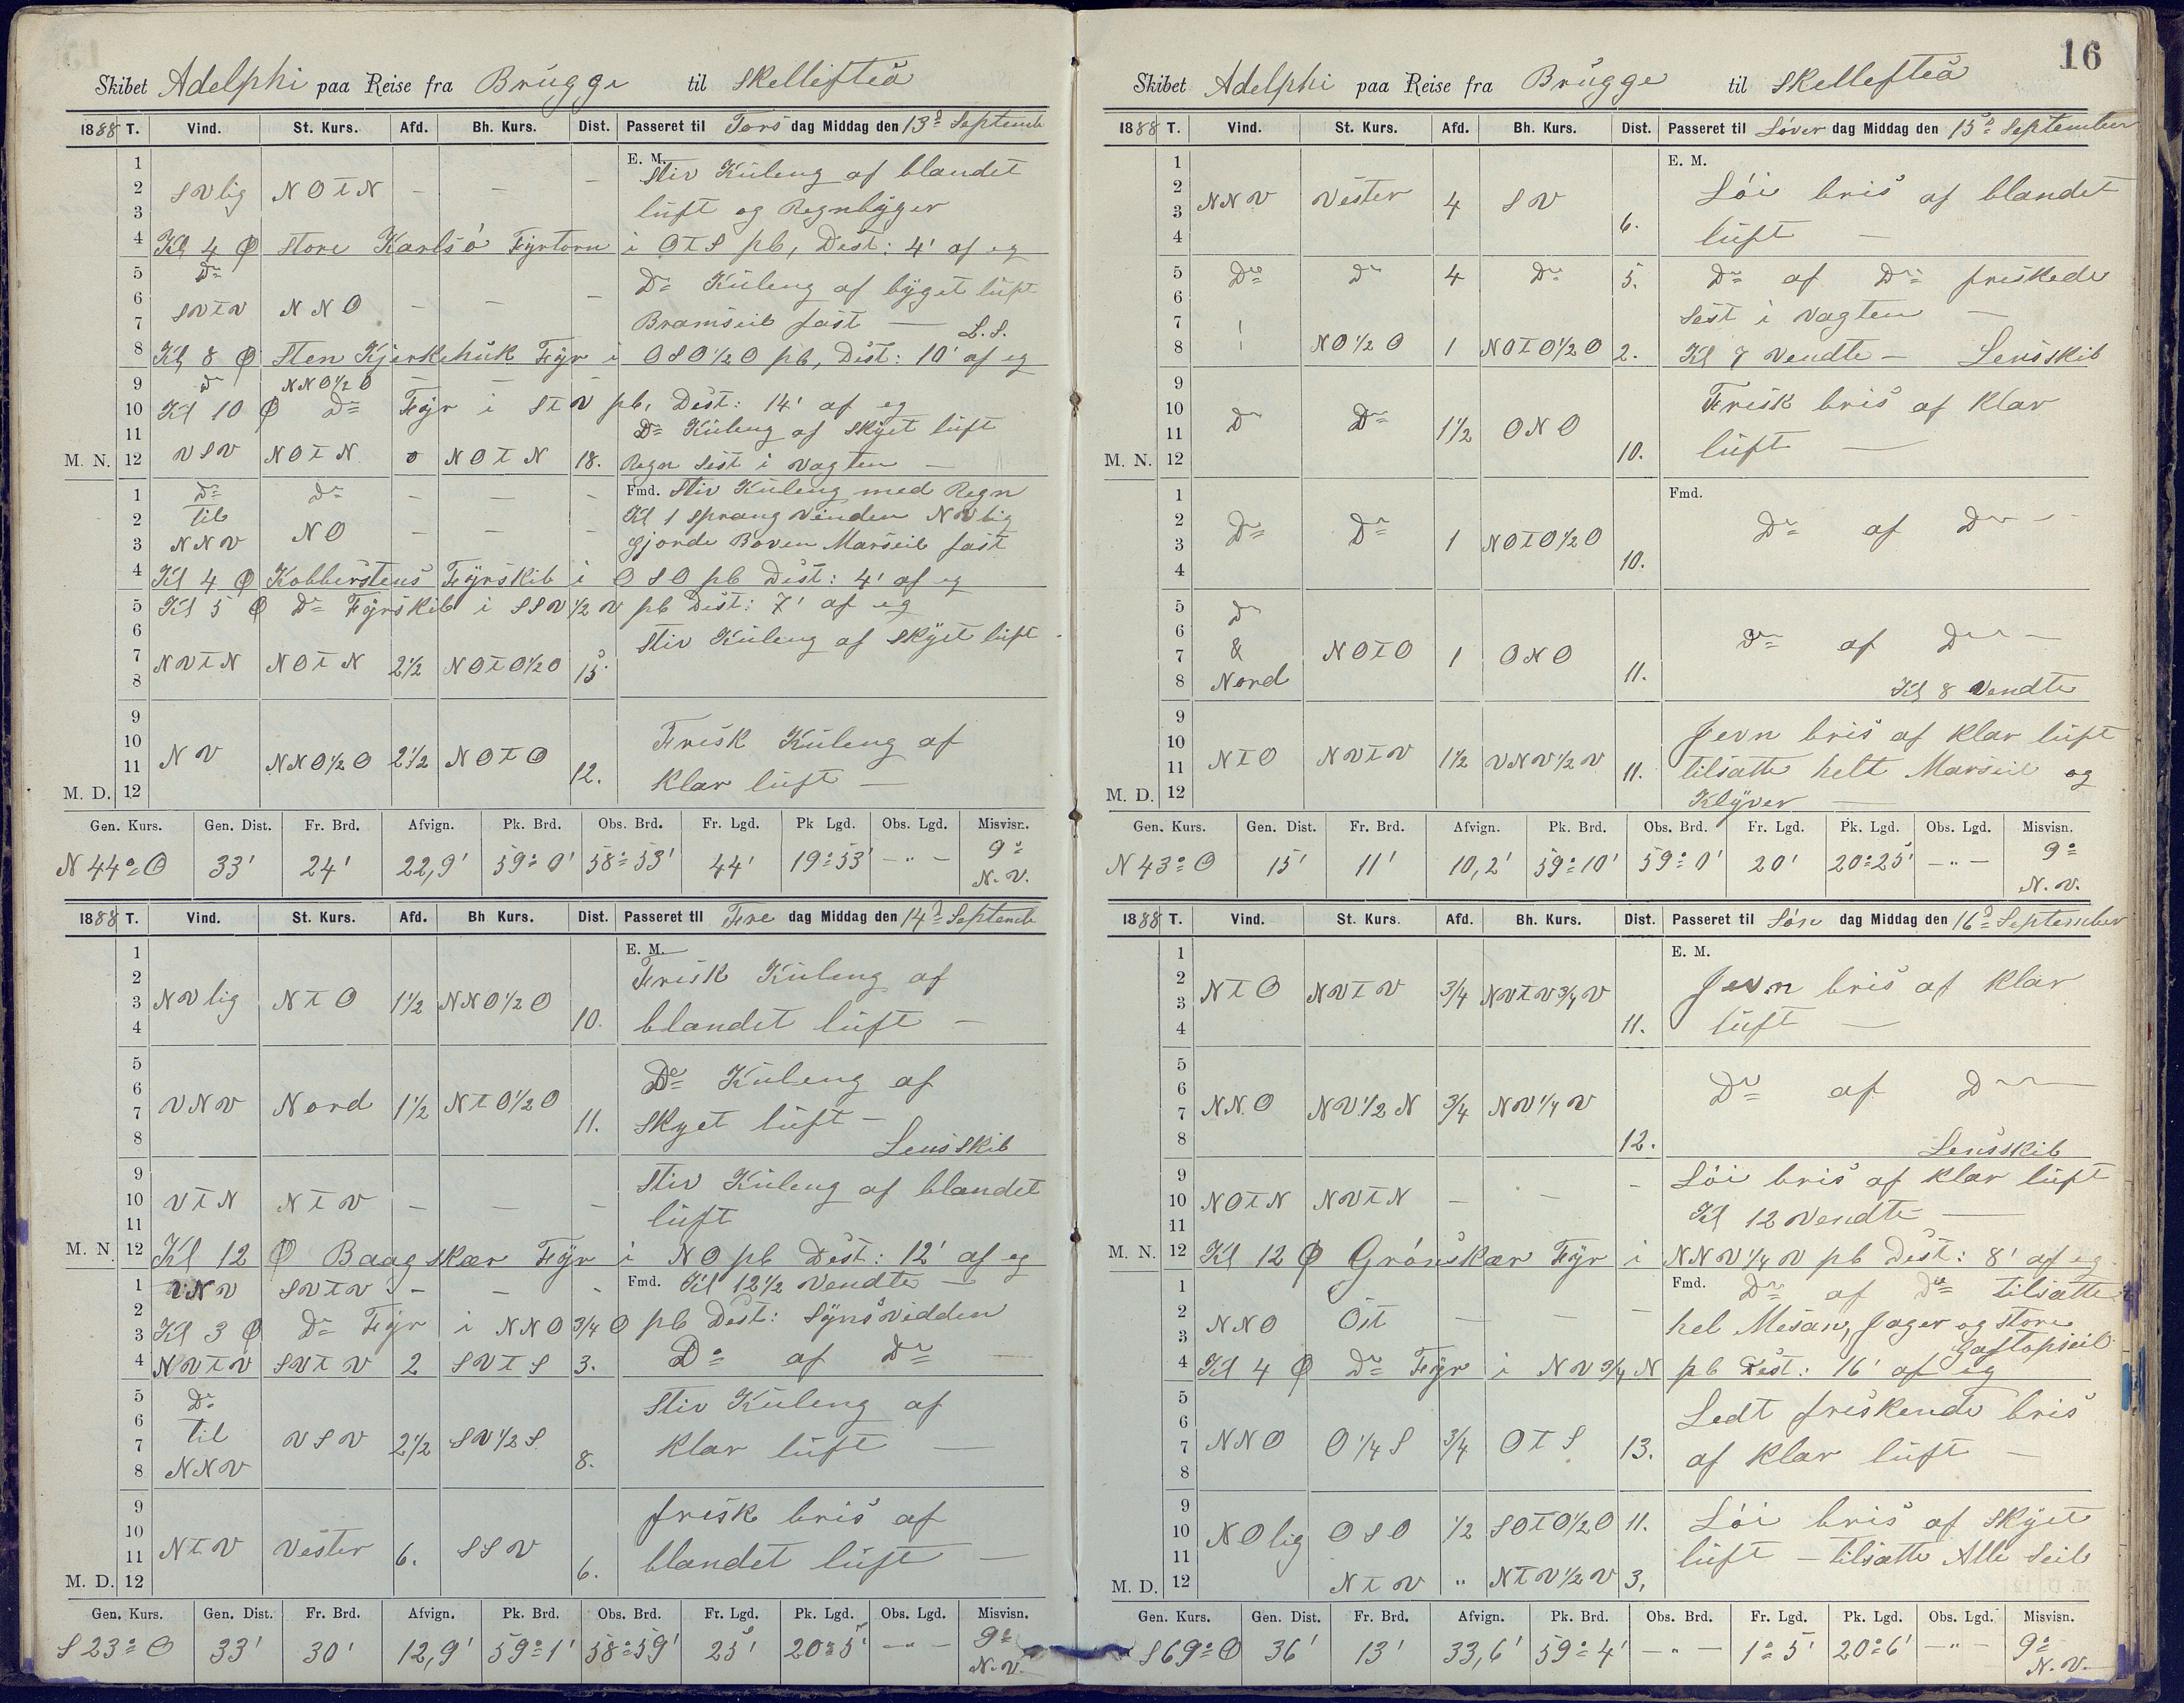 Skibet Adelphi paa Reise fra Brügge til Skellefteå
1888 T. Vind. St. Kurs. Afd. Bh. Kurs. Dist. Passeret til Torsdag Middag den 13d Septemb
1 E. M. Stiv Küleng af blandet
2 SVlig NOtN – – –
3 lüft og Regnbÿger
4 Kl 4 Φ Store Karlsö Fÿrtorn i OtS pb, Dist: 4' af eg
5 Do Do Küleng af bÿget lüft
6 SVtV NNO – – –
7 Bramseil fast – L.S.
8 Kl 8 Φ Sten Kjerkehük Fÿr i OSO1/2O pb, Dist: 10' af eg
9 do NNO1/2O – – –
10 Kl 10 Φ Do Fÿr i StV pb, Dist: 14' af eg
11 Do Küleng af Skÿet lüft
M. N. 12 VSV NOtN 0 NOtN 18. Regn Sist i Vagten –
1 Do Do – – – Fmd. Stiv Küleng med Regn
2 til Kl 1 Sprang Vinden NVlig
3 NNV NO – – – gjorde Boven Marseil fast
4 Kl 4 Φ Kobberstens Fÿrskib i OSO pb Dist: 4' af eg
5 Kl 5 Φ Do Fÿrskib i SSV1/2V pb Dist: 7' af eg
6 Stiv Küleng af Skÿet lüft
7 NVtN NOtN 2 1/2 NOtO1/2O 15.
8
9
10 Frisk Küleng af
11 NV NNO1/2O 2 1/2 NOtO 12.
M. D. 12 klar lüft –
Gen. Kurs. Gen. Dist. Fr. Brd. Afvign. Pk. Brd. Obs. Brd. Fr. Lgd. Pk Lgd. Obs. Lgd. Misvisn.
N 44° O 33' 24' 22,9' 59° 0' 58° 53' 44' 19° 53' –"– 9° N.V.
1888 T. Vind. St. Kurs. Afd. Bh Kurs. Dist. Passeret til Fredag Middag den 14d Septemb
1 E. M.
2 Frisk Küleng af
3 NVlig NtO 1 1/2 NNO1/2O 10.
4 blandet lüft –
5
6 Do Küleng af
7 VNV Nord 1 1/2 NtO1/2O 11. Skyet lüft –
8 Lensskib
9 Stiv Küleng af blandet
10 VtN NtV – – –
11 lüft
M. N. 12 Kl 12 Φ Baagskær Fÿr i NO pb Dist: 12' af eg
1 VNV SVtV – – – Fmd. Kl 12 1/2 Vendte –
2
3 Kl 3 Φ Do Fÿr i NNO3/4O pb Dist: Sÿnsvidden
4 NVtV SVtV 2 SVtS 3. Do af Do –
5 Do Stiv Küleng af
6 til
7 VSV 2 1/2 SV1/2S 8. klar lüft –
8 NNV
9
10 frisk bris af
11 NtV Vester 6. SSV 6. blandet lüft –
M. D. 12
Gen. Kurs. Gen. Dist. Fr. Brd. Afvign. Pk. Brd. Obs. Brd. Fr. Lgd. Pk. Lgd. Obs. Lgd. Misvisn.
S 23° O 33' 30' 12,9' 59° 1' 58° 59' 25' 20° 5' –"– 9° N.V.
16
Skibet Adelphi paa Reise fra Brügge til Skellefteå
1888 T. Vind. St. Kurs. Afd. Bh. Kurs. Dist. Passeret til Löverdag Middag den 15d September
1 E. M.
2 Löi bris af blandet
3 NNV Vester 4 SV 6.
4 lüft –
5 Do Do 4 Do 5. Do af Do friskede
6
7 ! Sist i Vagten –
8 ! NO1/2O 1 NOtO1/2O 2. Kl 7 Vendte – Lensskib
9
10 Frisk bris af klar
11 Do Do 1 1/2 ONO 10.
M. N. 12 lüft –
1 Fmd.
2 Do af Do –
3 Do Do 1 NOtO1/2O 10.
4
5 Do
6 Do af Do –
7 & NOtO 1 ONO 11.
8 Nord Kl 8 Vendte
9 Jevn bris af klar lüft
10
11 NtO NVtV 1 1/2 VNV1/2V 11. tilsatte helt Marseil og
M. D. 12 Klÿver –
Gen. Kurs. Gen. Dist. Fr. Brd. Afvign. Pk. Brd. Obs. Brd. Fr. Lgd. Pk. Lgd. Obs. Lgd. Misvisn.
N 43° O 15' 11' 10,2' 59° 10' 59° 0' 20' 20° 25' –"– 9° N.V.
1888 T. Vind. St. Kurs. Afd. Bh. Kurs. Dist. Passeret til Söndag Middag den 16d September
1 E. M.
2 Jevn bris af klar
3 NtO NVtV 3/4 NVtV3/4V 11.
4 lüft –
5
6 Do af Do –
7 NNO NV1/2N 3/4 NV1/4V 12.
8 Lensskib
9 Löi bris af klar lüft
10 NOtN NVtN – – –
11 Kl 12 Vendte –
M. N. 12 Kl 12 Φ Grönskær Fÿr i NNV1/4V pb Dist: 8' af eg
1 Fmd. Do af Do tilsatte
2 NNO Öst – – – hel Mesan, Jager og Store
3 Gaftopseil
4 Kl 4 Φ Do Fÿr i NV3/4N pb Dist: 16' af eg
5
6 Ledt friskende bris
7 NNO O1/4S 3/4 OtS 13. af klar lüft –
8
9
10 NOlig OSO 1/2 SOtO1/2O 11. Löi bris af Skÿet
11 lüft – tilsatte Alle Seil
M. D. 12 NtV " NtV1/2V 3,
Gen. Kurs. Gen. Dist. Fr. Brd. Afvign. Pk. Brd. Obs. Brd. Fr. Lgd. Pk. Lgd. Obs. Lgd. Misvisn.
S 69° O 36' 13' 33,6' 59° 4' –"– 1° 5' 20° 6' –"– 9° N.V.